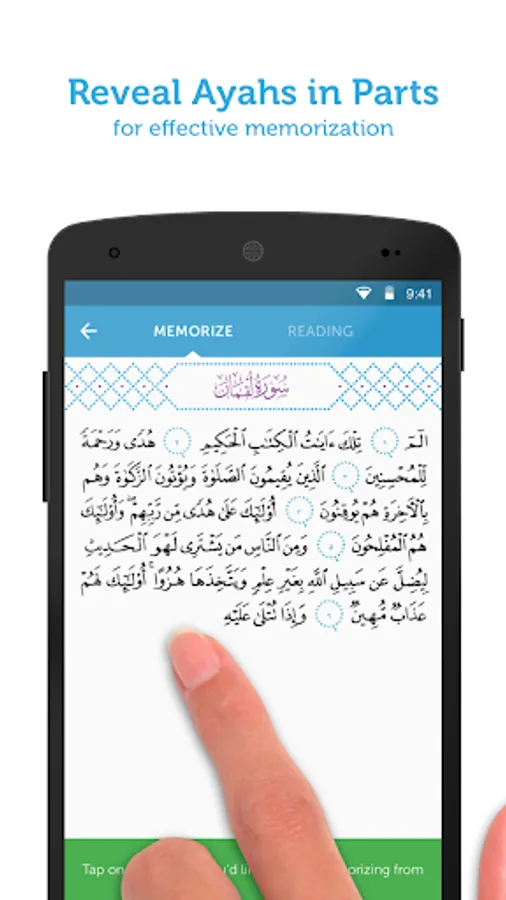 Reveal Ayahs in Parts
for effective memorization
9:41
MEMORIZE READING
سُورَةُ لُقْمَانَ
الٓمٓ ١ تِلْكَ ءَايَٰتُ ٱلْكِتَٰبِ ٱلْحَكِيمِ ٢ هُدًى وَرَحْمَةً
لِّلْمُحْسِنِينَ ٣ ٱلَّذِينَ يُقِيمُونَ ٱلصَّلَوٰةَ وَيُؤْتُونَ ٱلزَّكَوٰةَ وَهُم
بِٱلْءَاخِرَةِ هُمْ يُوقِنُونَ ٤ أُو۟لَٰٓئِكَ عَلَىٰ هُدًى مِّن رَّبِّهِمْ ۖ وَأُو۟لَٰٓئِكَ
هُمُ ٱلْمُفْلِحُونَ ٥ وَمِنَ ٱلنَّاسِ مَن يَشْتَرِى لَهْوَ ٱلْحَدِيثِ
لِيُضِلَّ عَن سَبِيلِ ٱللَّهِ بِغَيْرِ عِلْمٍ وَيَتَّخِذَهَا هُزُوًا ۚ أُو۟لَٰٓئِكَ لَهُمْ
عَذَابٌ مُّهِينٌ ٦ وَإِذَا تُتْلَىٰ عَلَيْهِ
Tap on 'd li orizing from